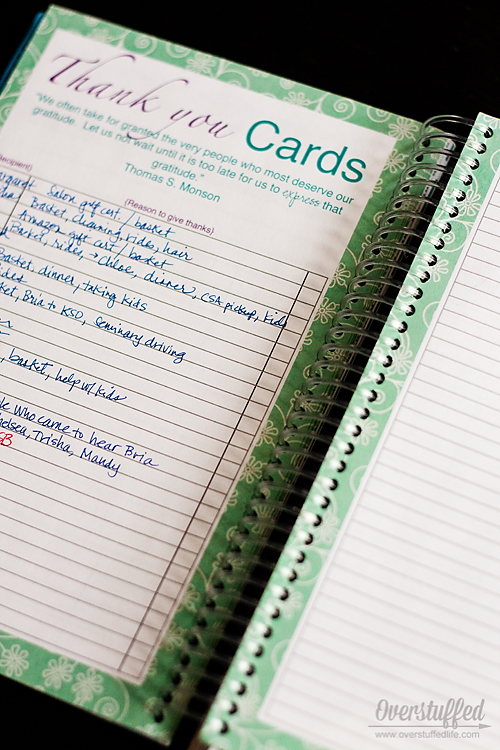 Thank you Cards
"We often take for granted the very people who most deserve our
gratitude. Let us not wait until it is too late for us to express that
gratitude."
Thomas S. Monson
(Reason to give thanks)
Salon gift cert / basket
Basket, cleaning, rides, hair
Amazon gift cert / basket
Basket, rides, → Chloe, dinner, CSA pickup, kids
Basket, dinner, taking kids
Bria to KSD, Seminary driving
, basket, help w/ kids
who came to hear Bria
Trisha, Mandy
Overstuffed
www.overstuffedlife.com